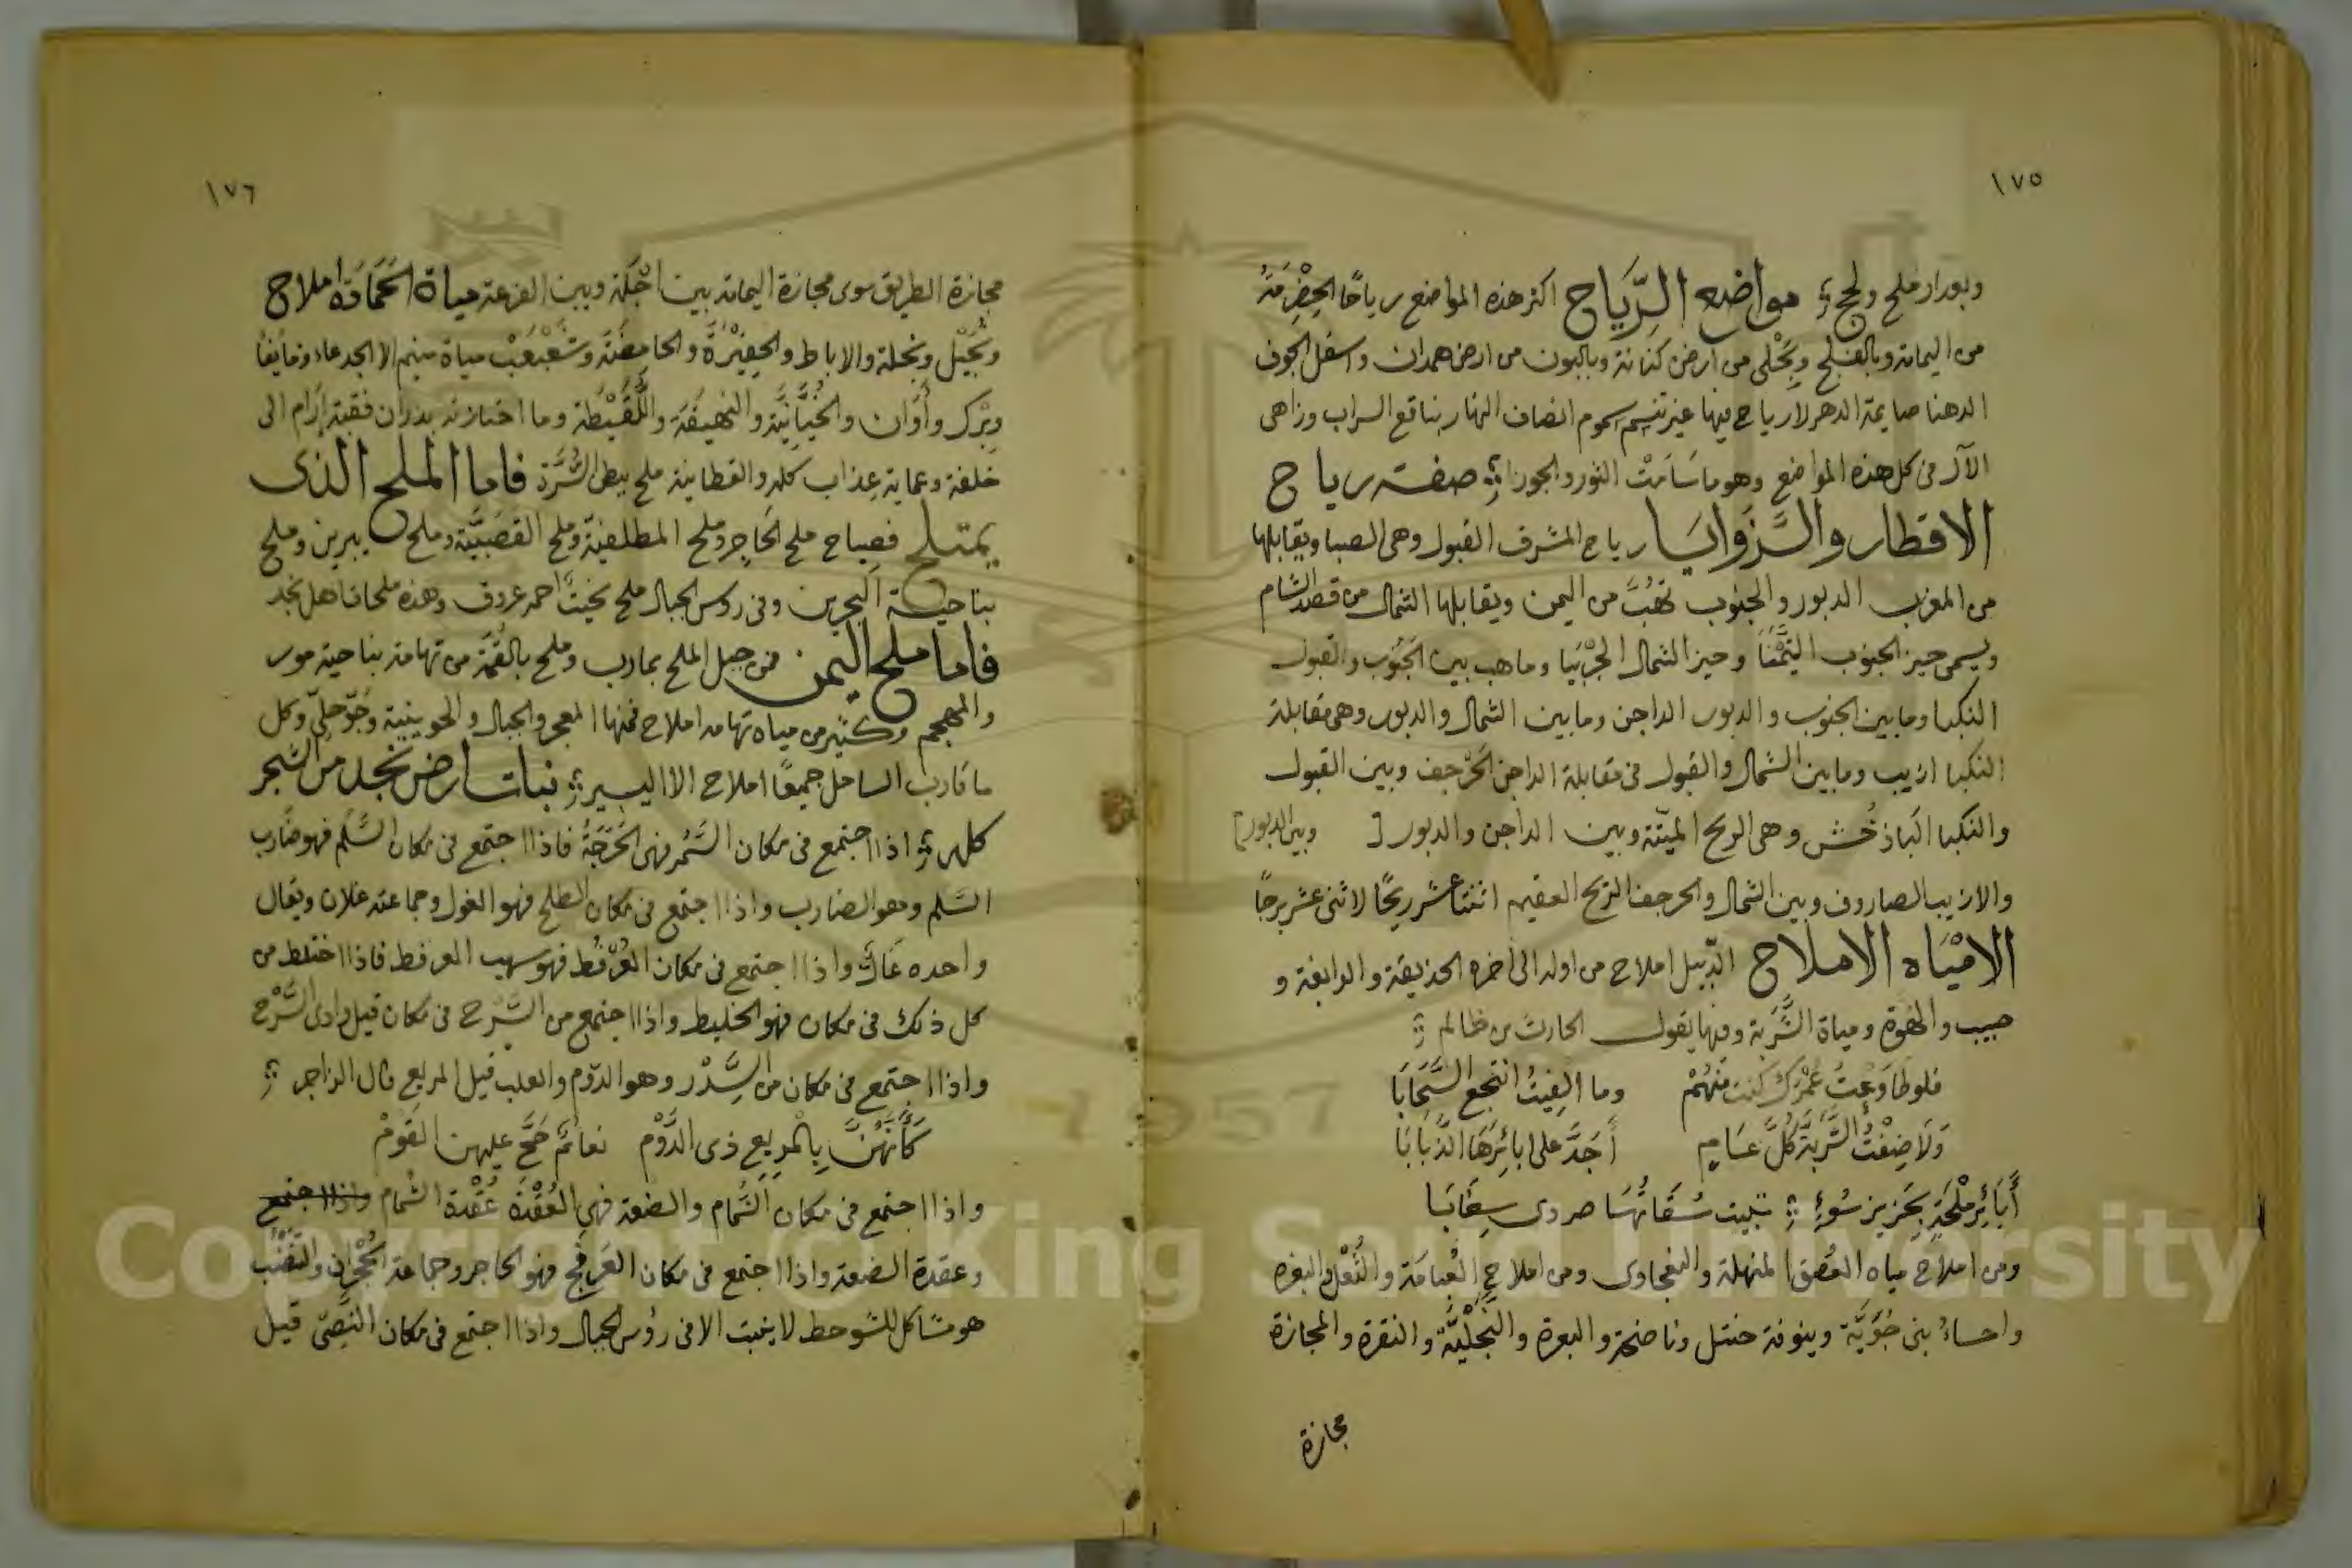 ١٧٥
وبعدار ملح ولحج ⁘ مواضع الرِّيَاح اكثر هذه المواضع رياحًا الحِضْرِمَةُ
من اليمامة وبالفلج وبحَلْى من ارض كنانة وبالبون من ارض همدان واسفل الجوف
الدهنا صايمة الدهر لا رياح فيها غير تنسم سموم انصاف النهار بناقع السراب وزاهى
الآل فى كل هذه المواضع وهو ما سَامَتْ الثور والجوزا ⁘ صفة رياح
الاقطار والزَّوَايَا رياح المشرق القبول وهى الصبا ويقابلها
من المغرب الدبور والجنوب تهُبّ من اليمن ويقابلها الشمال من قصد الشام
ويسمى حيز الجنوب التيمْنَا وحيز الشمال الجِرْبيَا وما هب بين الجَنُوب والقبول
النكبا وما بين الجنوب والدبور الداجن وما بين الشمال والدبور وهى مقابلة
النكبا ازيب وما بين الشمال والقبول فى مقابلة الداجن الحَرْجف وبين القبول
والنكبا الباذخُش وهى الريح الميّتة وبين الداجن والدبور [ وبين الدبور]
والازيب الصاروف وبين الشمال والحرجف الريح العقيم اثنتا عشر ريحًا لاثنى عشر برجًا
الامْيَاه الاملاح الدّبيل املاح من اوله الى اخره الحذيقة والرابغة و
حبيب والهوة ومياة الشَّرَبة وفيها يقول الحارث بن ظالم ⁘
فلو طاوَعتُ عَمْرَك كنت منهُمْ وما الفِيتُ انتجع السَّحَابَا
وَلَا ضِفْتُ الشَّرَبَّةَ كُلَّ عَامٍ أَجَدَّ على ابائِرِهَا الذَّبَابَا
أَبَائِرَ مِلْحَةٍ بِحَزِيزِ سُوءٍ ⁘ تبيت سُقَاتُهَا صردى سِغَابَا
ومن املاح مياه العُصق المنهلة والنفجاوى ومن املاح الغُبامَة والثُعْل والبغره
واحساءُ بنى جُوَيَّة وينوفة حنتل وناضحة والبعرة والنَجْليَّة والنقرة والمجازة
مجازة
١٧٦
مجازة الطريق سوى مجازة اليمامة بين اجْلَة وبين الفرعة مياة الحَمَادَة املاح
ونُجَيْل ونخلة والاباط والحِفِيْرَة والحامضَة وشَعْبَعَبْ مياة منيم الا الجدعاء
وبِرْك وأَوَان والخُنّانِيَّة والنهيقَة واللَّقَيْطة وما اختازته بدران فقبة إرَام الى
خلفة وعماية عِذاب كلها والقطانية ملح ببطن السُّرَّة فاما الملح الذى
يمتلح فصباح ملح الحَاجِر وملح المطلعيّة وملح القَصَبِيَّة وملح يبرين وملح
بناحية البحرين وفى روس الجبال ملح نحيت احمر عروق وهذه ملحان اهل نجد
فاما ملح اليمن فمن جبل الملح بمارب وملح بالقُمّة من تهامة بناحية مور
والمهجم وكثير من مياه تهامه املاح فمنها المعجر والجبال والحوينيّة وجُوّحلِىّ وكل
ما قارب الساحل جميعًا املاح الا اليسير ⁘ نبات ارض نجد من الشجر
كلها ⁘ اذا اجتمع فى مكان السَّمُر فهى الحَرَجَةُ فاذا اجتمع فى مكان السَّلَم فهو ضارب
السَّلم وهو الضارب واذا اجتمع فى مكان الطلح فهو الغول وجماعته غلان ويقال
واحده غَالّ واذا اجتمع فى مكان العُرْفُط فهو سهب العرفط فاذا اختلط من
كل ذلك فى مكان فهو الخليط واذا اجتمع من السَّرْح فى مكان قيل وادى السَّرْح
واذا اجتمع فى مكان من السِّدْر وهو الدّوم والعلب قيل المربع قال الراجز ⁘
كَأَنَّهُنَّ بِالمَرِبِعِ ذى الدَّوْم نعامٌ صَحَّ عليهن القَوْمْ
واذا اجتمع فى مكان الثُّمام والضعة فهى العُقْدَة عُقْدة الثُّمام واذا اجتمع
وعقدة الضعة واذا اجتمع فى مكان العَرفَج فهو الحاجر وجماعة الحُجْران والتنضُب
هو مشاكل للشوحط لا ينبت الا فى رؤس الجبال واذا اجتمع فى مكان النَصِىّ قيل
Copyright © King Saud University
1957